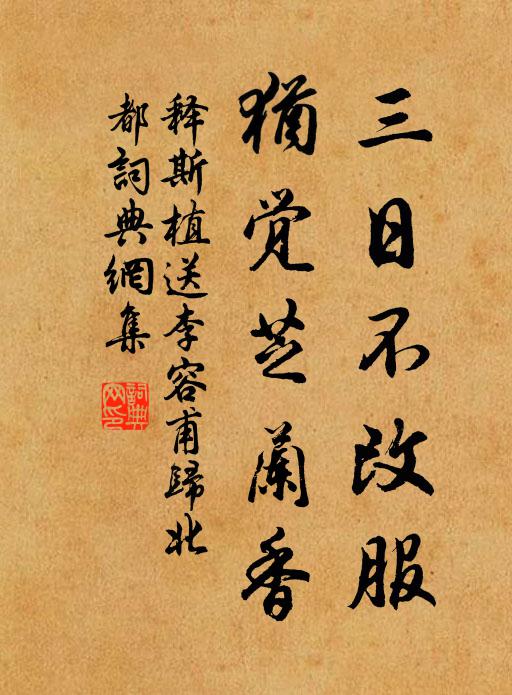 三日不改服
猶觉芝蘭香
释斯植送李容甫歸北
都詞典網集
詞典
网印